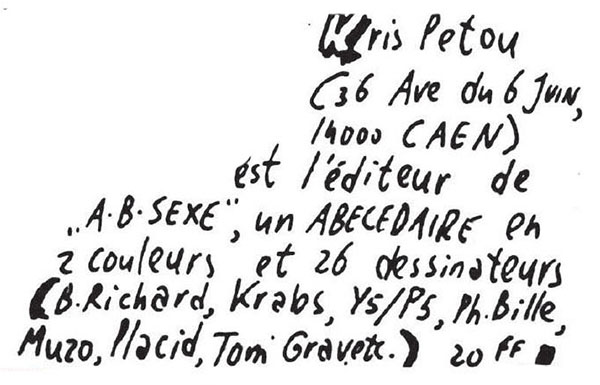 Kris Petou
(36 Ave du 6 Juin,
14000 CAEN)
est l'éditeur de
„A.B.SEXE", un ABECEDAIRE en
2 couleurs et 26 dessinateurs
(B.Richard, Krabs, Y5/P5, Ph.Bille,
Muzo, Placid, Tom Grav,etc.) 20 FF